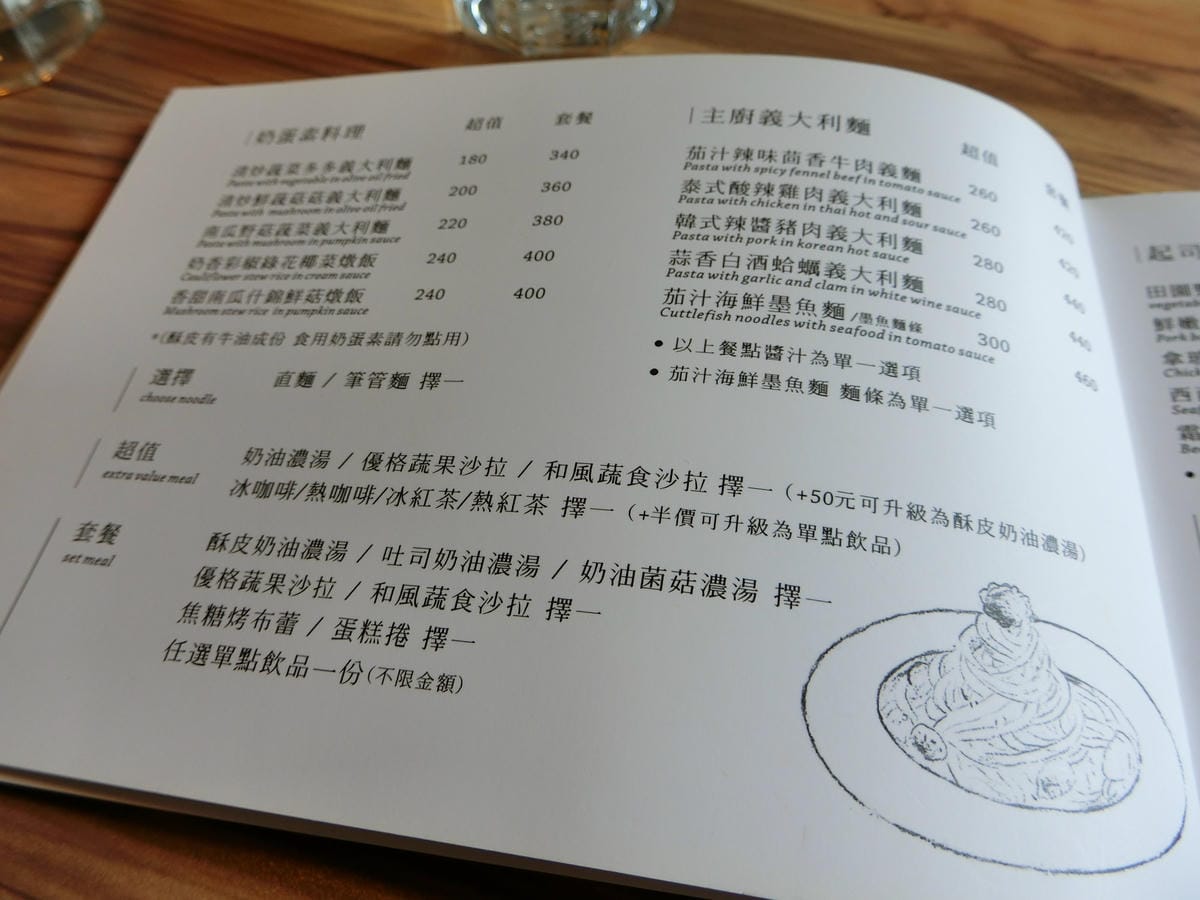 奶蛋素料理 超值 套餐
清炒蔬菜多多義大利麵 180 340
Pasta with vegetable in olive oil fried
清炒鮮蔬菇菇義大利麵 200 360
Pasta with mushroom in olive oil fried
南瓜野菇蔬菜義大利麵 220 380
Pasta with mushroom in pumpkin sauce
奶香彩椒綠花椰菜燉飯 240 400
Cauliflower stew rice in cream sauce
香甜南瓜什錦鮮菇燉飯 240 400
Mushroom stew rice in pumpkin sauce
*(酥皮有牛油成份 食用奶蛋素請勿點用)
主廚義大利麵 超值 套餐
茄汁辣味茴香牛肉義麵 260 420
Pasta with spicy fennel beef in tomato sauce
泰式酸辣雞肉義大利麵 260 420
Pasta with chicken in thai hot and sour sauce
韓式辣醬豬肉義大利麵 280 440
Pasta with pork in korean hot sauce
蒜香白酒蛤蠣義大利麵 280 440
Pasta with garlic and clam in white wine sauce
茄汁海鮮墨魚麵 /墨魚麵條 300 460
Cuttlefish noodles with seafood in tomato sauce
• 以上餐點醬汁為單一選項
• 茄汁海鮮墨魚麵 麵條為單一選項
選擇 直麵 / 筆管麵 擇一
choose noodle
超值 奶油濃湯 / 優格蔬果沙拉 / 和風蔬食沙拉 擇一 (+50元可升級為酥皮奶油濃湯)
extra value meal 冰咖啡/熱咖啡/冰紅茶/熱紅茶 擇一 (+半價可升級為單點飲品)
套餐 酥皮奶油濃湯 / 吐司奶油濃湯 / 奶油菌菇濃湯 擇一
set meal 優格蔬果沙拉 / 和風蔬食沙拉 擇一
焦糖烤布蕾 / 蛋糕捲 擇一
任選單點飲品一份(不限金額)
起司
田園
鮮嫩
西
霜